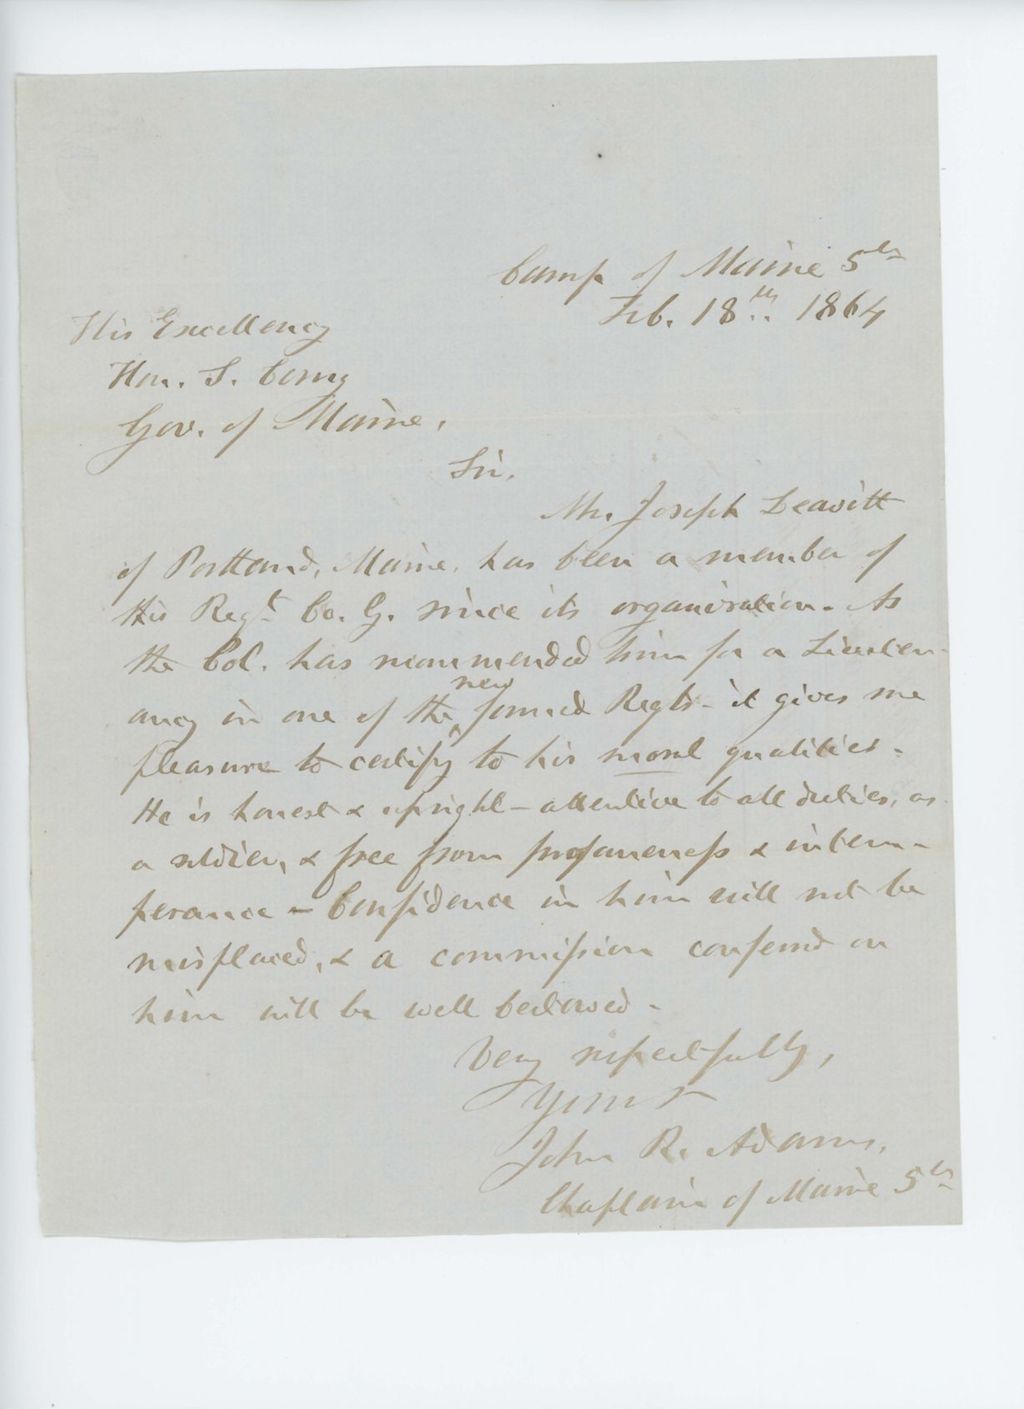 Camp of Maine 5th
Feb. 18th. 1864
His Excellency
Hon. S. Cony
Gov. of Maine,
Sir,
Mr. Joseph Leavitt
of Portland, Maine, has been a member of
this Regt. Co. G. since its organization. As
the Col. has recommended him for a Lieuten-
new
ancy in one of the formed Regts - it gives me
pleasure to certify to his moral qualities.
He is honest & upright - attentive to all duties, as
a soldier, & free from profaneness & intem-
perance - Confidence in him will not be
misplaced, & a commission conferred on
him will be well bestowed -
Very respectfully,
Yours
John R. Adams,
Chaplain of Maine 5th